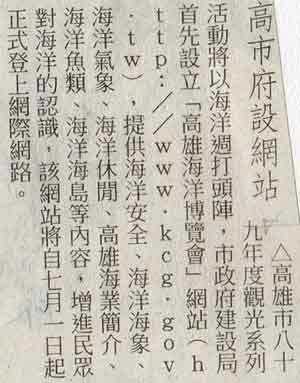 高市府設網站
△高雄市八十
九年度觀光系列
活動將以海洋週打頭陣，市政府建設局
首先設立「高雄海洋博覽會」網站（h
ttp://www.kcg.gov
.tw），提供海洋安全、海洋海象、
海洋氣象、海洋休閒、高雄海業簡介、
海洋魚類、海洋海島等內容，增進民眾
對海洋的認識，該網站將自七月一日起
正式登上網際網路。